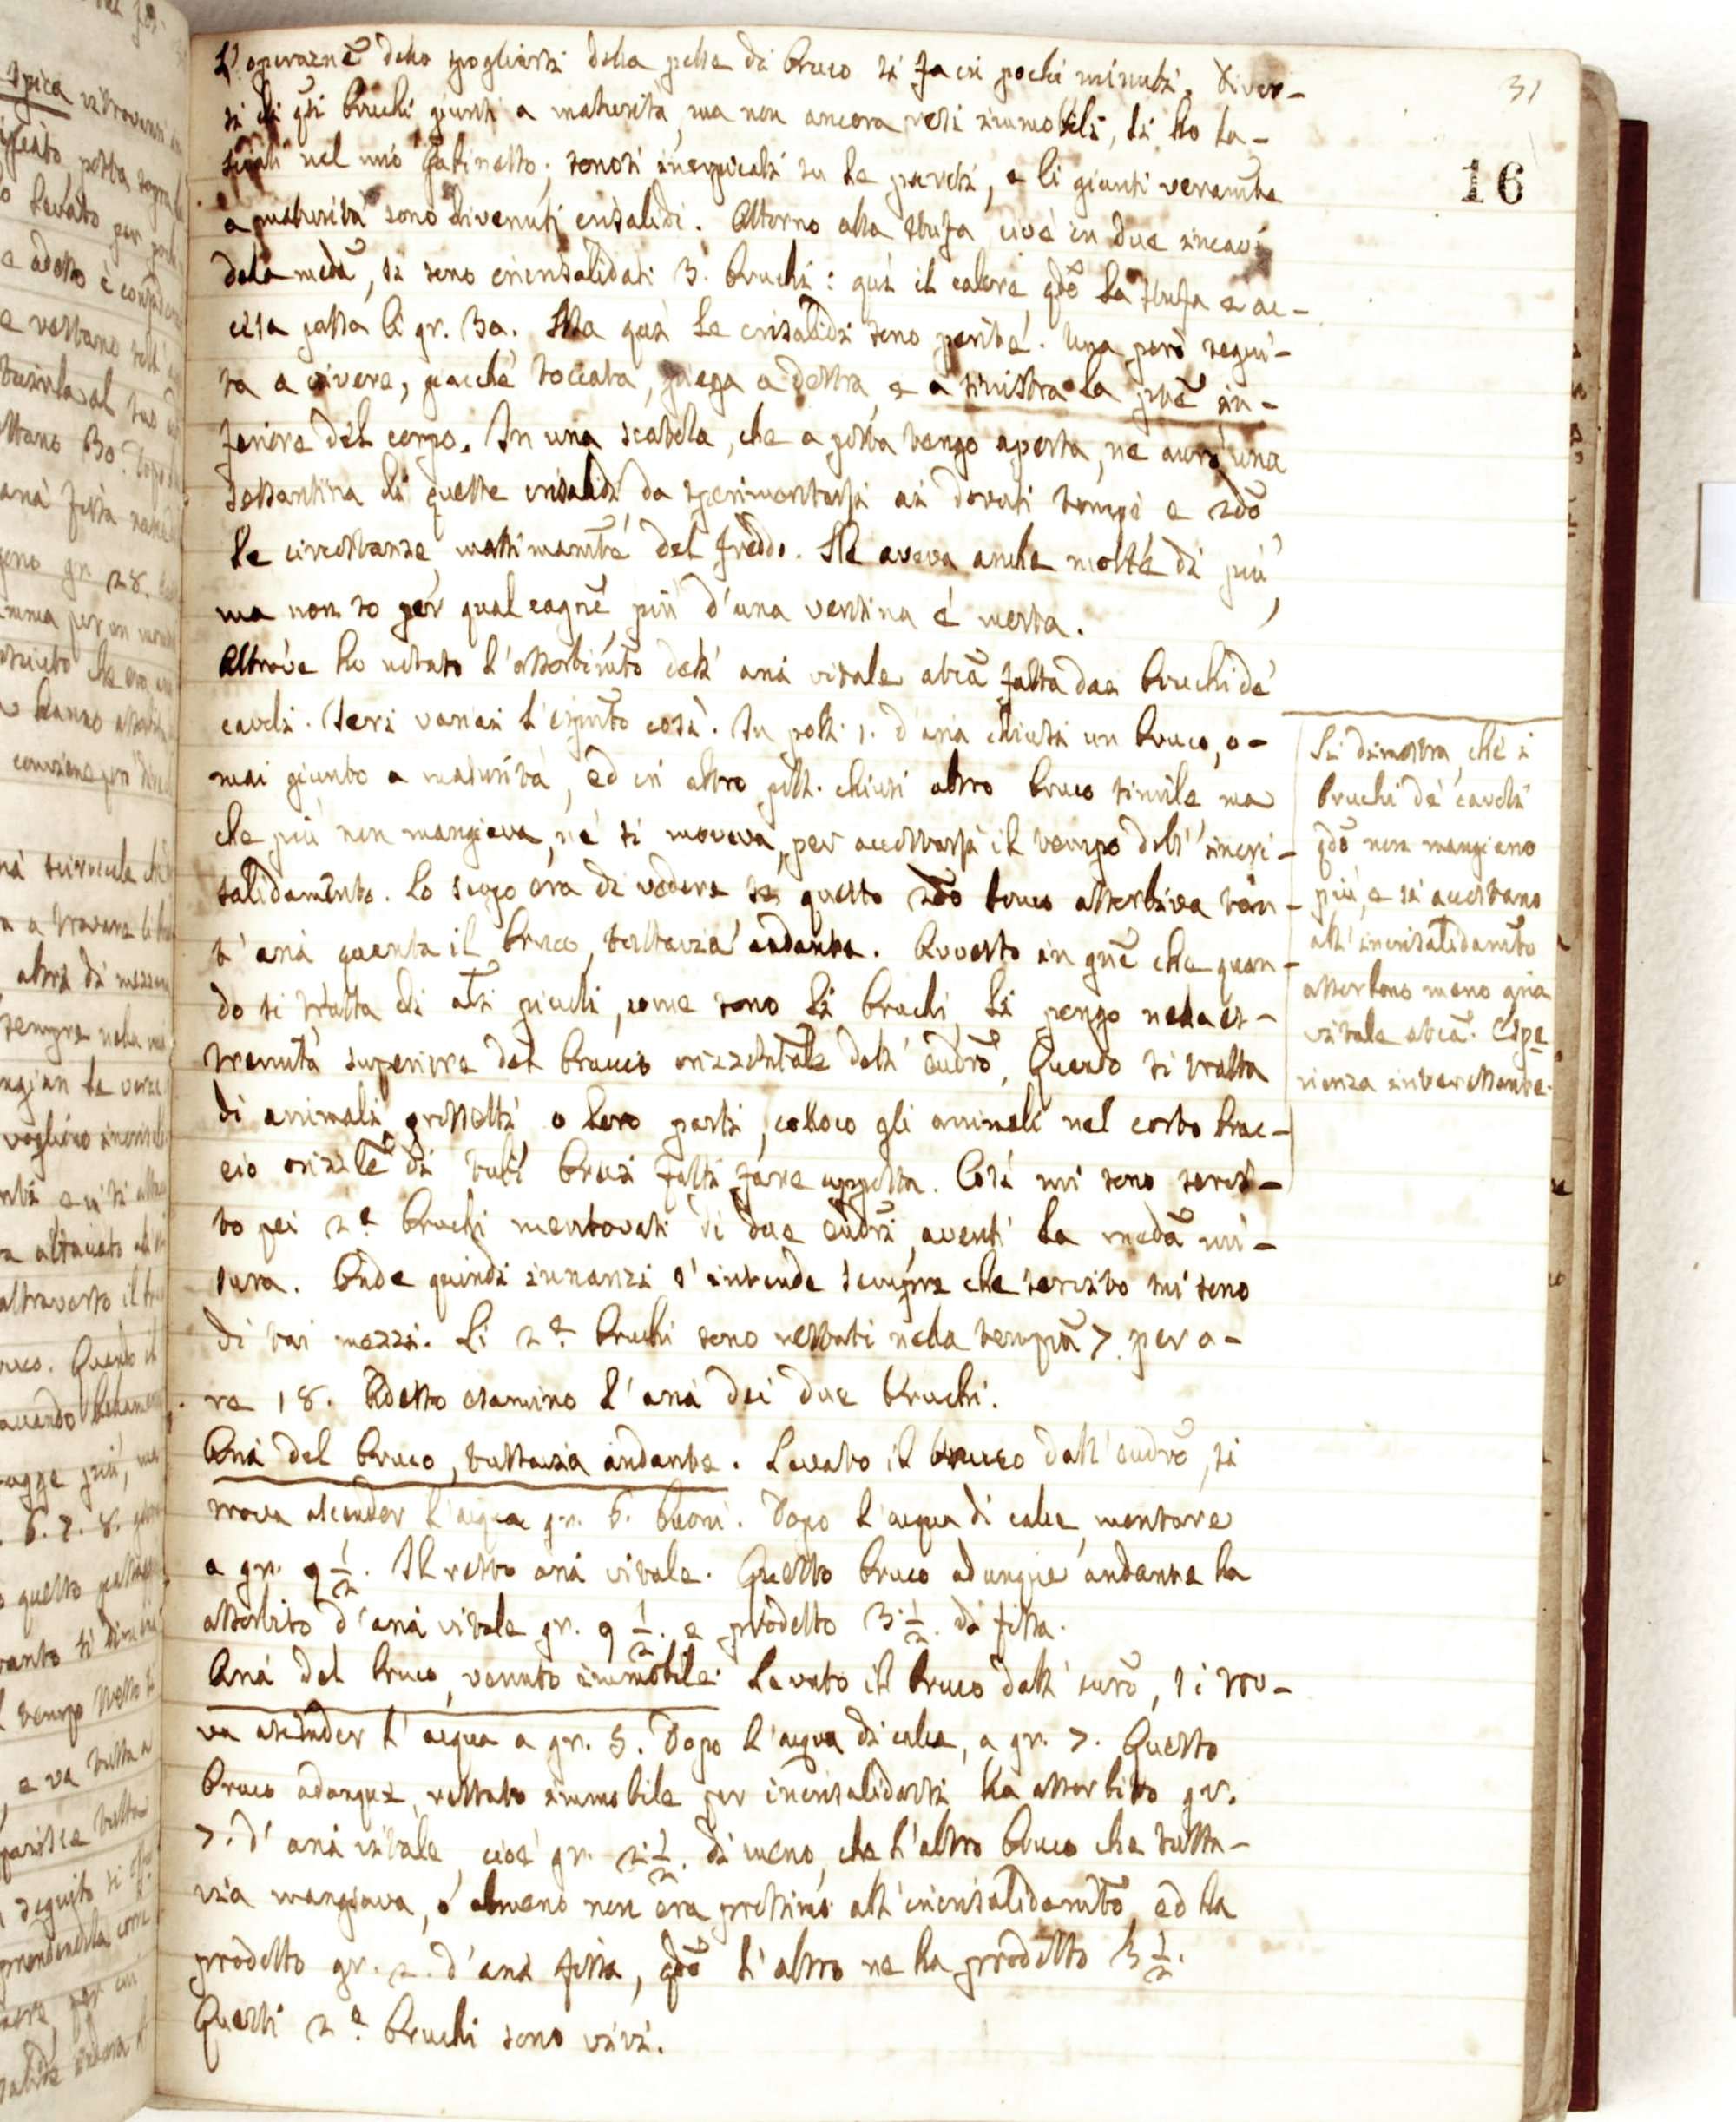 31
16
L'operazne dello spogliarsi della pelle di bruco si fa in pochi minuti. Diver-
si di qsti bruchi giunti a maturità, ma non ancora resi immobili, li ho la-
sciati nel mio gabinetto; sonosi inerpicati su le pareti, e li giunti veramte
a maturità sono divenuti crisalidi. Attorno alla stufa cioè in due incavi
dela meda, si sono incrisalidati 3. bruchi: quì il calore qdo la stufa è ac-
cesa passa li gr. 30. Ma quì le crisalidi sono perite. Una però segui-
ta a vivere, giacchè toccata, piega a destra e a sinistra la pte in-
feriore del corpo. In una scatola, che a posta tengo aperta, ne avrò una
sessantina di queste crisalidi da sperimentarsi ai dovuti tempi e 2do
le circostanze massimamte del freddo. Ne aveva anche molte di più,
ma non so per qual cagne più d'una ventina è morta.
Altrove ho notato l'assorbimto dell' aria vitale atca fatta dai bruchi de'
cavoli. Ieri variai l'esperimto così. In polli 1. d'aria chiusi un bruco, o-
mai giunto a maturità, ed in altro poll. chiusi altro bruco simile, ma
che più non mangiava, nè si moveva, per accostarsi il tempo dell' incri-
salidamento. Lo scopo era di vedere se questo 2do bruco assorbiva tan-
t' aria quanta il bruco, tuttavia andante. Avverto in gne che quan-
do si tratta di ali piccoli, come sono li bruchi, li pongo nella es-
tremità superiore del braccio orizzontale dell' eudro, Quando si tratta
di animali grossetti, o loro parti, colloco gli animali nel corto brac-
cio orizzle di tubi bruzi fatti fare apposta. Così mi sono servi-
to pei 2e bruchi mentovati di due eudri, aventi la meda mi-
sura. Onde quindi innanzi s'intende sempre che servito mi sono
di tai mezzi. Li 2e bruchi sono restati nella tempra 7. per o-
re 18. Adesso esamino l'aria dei due bruchi.
Aria del bruco, tuttavia andante. Levato il bruco dall' eudro, si
trova ascender l'acqua gr. 6. buoni. Dopo l'acqua di calce, montare
a gr. 9 1/2. Il resto aria vitale. Questo bruco adunque andante ha
assorbito d'aria vitale gr. 9 1/2. e prodotto 3 1/2. di fissa.
Aria del bruco, venuto immobile. Levato il bruco dall' eudro, si tro-
va ascender l'acqua a gr. 5. Dopo l'acqua di calce, a gr. 7. Questo
bruco adunque, restato immobile per incrisalidarsi ha assorbito gr.
7. d'aria vitale, cioè gr. 2 1/2. di meno, che l'altro bruco che tutta-
via mangiava, o almeno non era prossimo all' incrisalidamto, ed ha
prodotto gr. 2. d'aria fissa, qdo l'altro ne ha prodotto 3 1/2.
Questi 2e bruchi sono vivi.
Si dimostra, che i
bruchi de' cavoli
qdo non mangiano
più, e si accostano
all' incrisalidamto
assorbono meno aria
vitale atca. Espe
rienza interessante.